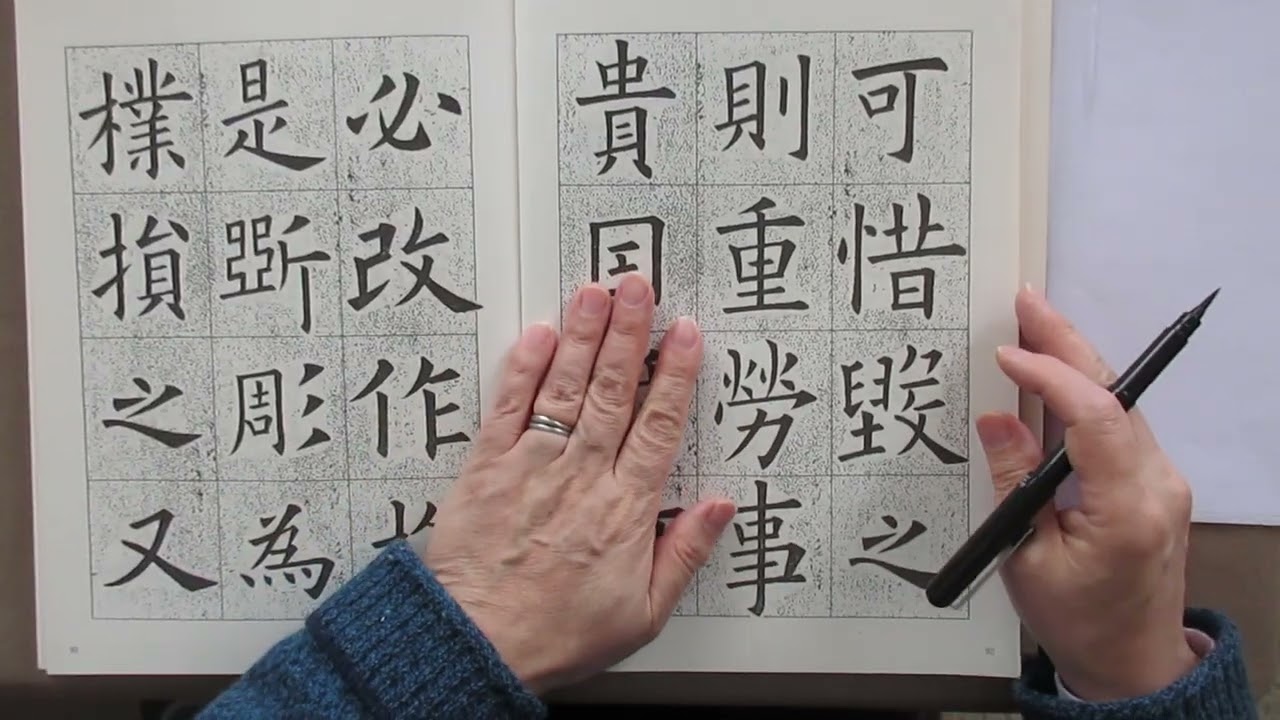 可惜毀之
則重勞事
貴因
必改作
是斵彫為
樸損之又